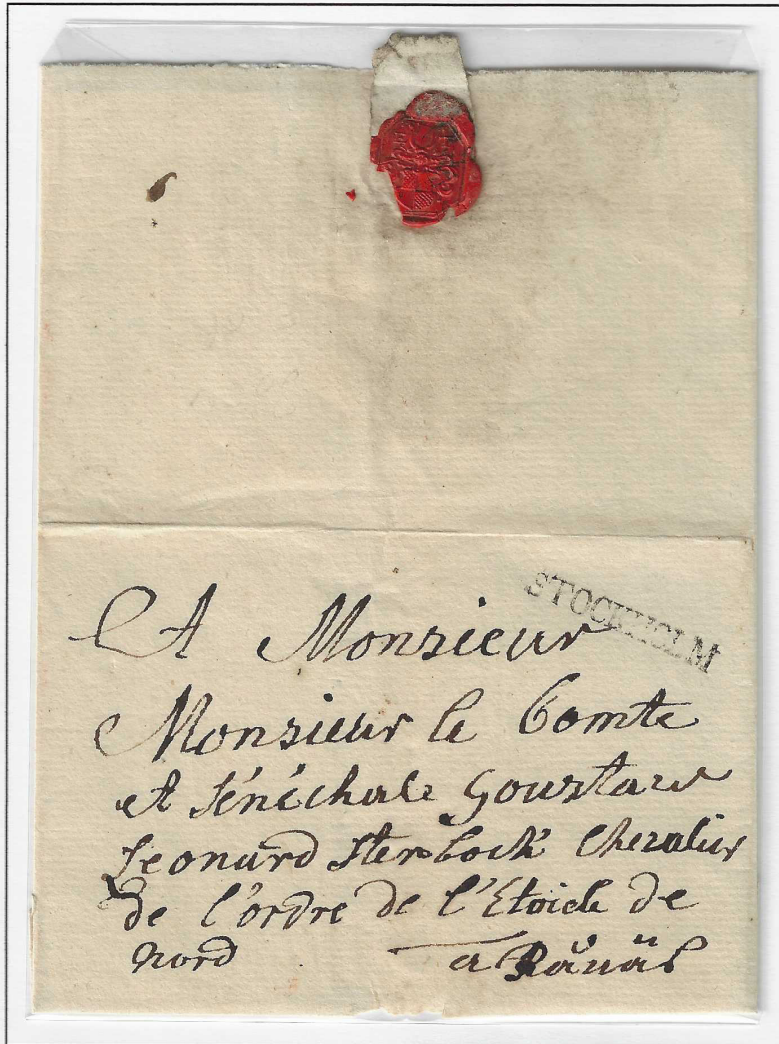 STOCKHOLM
A Monsieur
Monsieur le Comte
et Sénéchale Goustave
Leonard Stenbock Chevalier
de l'ordre de l'Etoile de
Nord a Rånäs